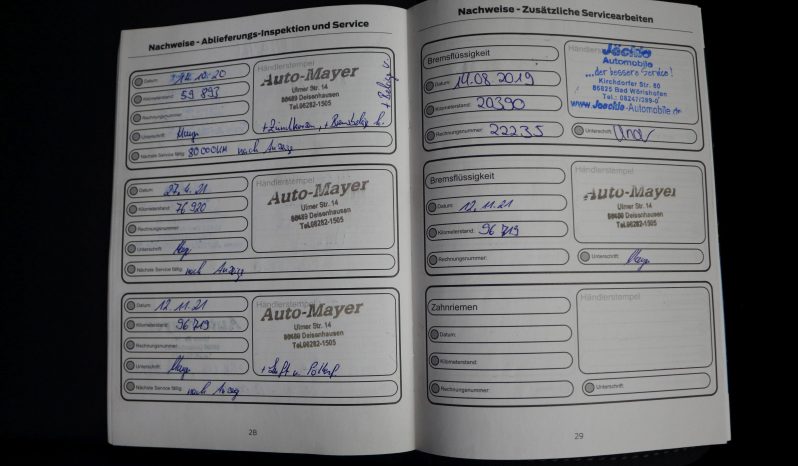 Nachweise - Ablieferungs-Inspektion und Service
Datum: 12.10.20
Kilometerstand: 59 893
Rechnungsnummer:
Unterschrift:
Nächste Service fällig: 80 000 KM nach Anzeige
Händlerstempel
Auto-Mayer
Ulmer Str. 14
86489 Deisenhausen
Tel.08282-1505
+ Zündkerzen, +
Datum: 27.4.21
Kilometerstand: 76 920
Rechnungsnummer:
Unterschrift:
Nächste Service fällig: nach Anzeige
Händlerstempel
Auto-Mayer
Ulmer Str. 14
86489 Deisenhausen
Tel.08282-1505
Datum: 12.11.21
Kilometerstand: 96 719
Rechnungsnummer:
Unterschrift:
Nächste Service fällig: nach Anzeige
Händlerstempel
Auto-Mayer
Ulmer Str. 14
86489 Deisenhausen
Tel.08282-1505
+ Luft u. Pollenf
28
Nachweise - Zusätzliche Servicearbeiten
Bremsflüssigkeit
Datum: 14.08.2019
Kilometerstand: 20390
Rechnungsnummer: 22235
Jäckle
Automobile
...der bessere Service!
Kirchdorfer Str. 80
86825 Bad Wörishofen
Tel.: 08247/399-0
www.Jaeckle-Automobile.de
Unterschrift:
Bremsflüssigkeit
Datum: 12.11.21
Kilometerstand: 96 719
Rechnungsnummer:
Händlerstempel
Auto-Mayer
Ulmer Str. 14
86489 Deisenhausen
Tel.08282-1505
Unterschrift:
Zahnriemen
Datum:
Kilometerstand:
Rechnungsnummer:
Händlerstempel
Unterschrift:
29